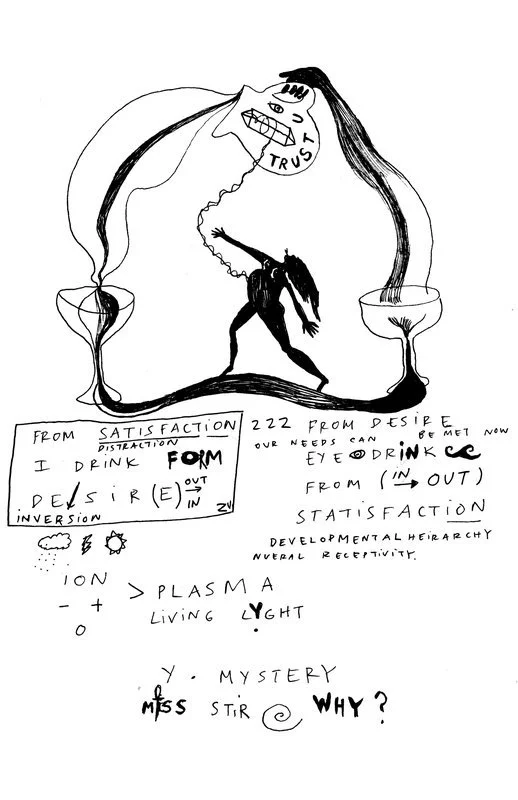 TRUST
FROM SATISFACTION
DISTRACTION
I DRINK FORM
DESIR(E) OUT
IN
INVERSION
222 FROM DESIRE
OUR NEEDS CAN BE MET NOW
EYE DRINK
FROM (IN → OUT)
STATISFACTION
DEVELOPMENTAL HEIRARCHY
NUERAL RECEPTIVITY.
ION
- +
O
> PLASMA
LIVING LYGHT
Y. MYSTERY
MISS STIR WHY?